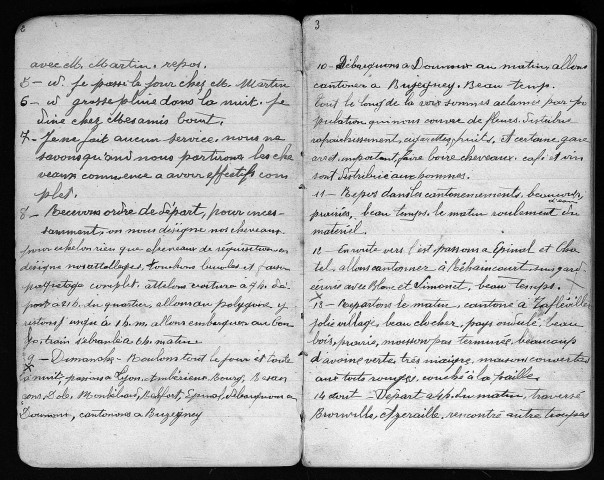 2
avec M. Martin. repos.
5 — id. je passe le jour chez M. Martin
6 — id grosse pluie dans la nuit. je
dine chez Mes amis Court.
7 — Je ne fait aucun service. nous ne
savons quand nous partirons les che
vaux commence a avoir effectif com
plet.
8 — Recevons ordre de départ, pour inces-
samment, on nous désigne nos chevaux
pour echelon rien que chevaux de réquisition on
désigne nos attellages, touchons vivres et
paquetage complet. attelons voiture a 7 h. dé
part a 21 h. du quartier, allons au polygone y
restons jusqu a 1 h. m. allons embarquer au
train s'ebranle a 6 h. matin
9 — Dimanche — Roulons tout le jour et toute
la nuit, passons a Lyon, Ambérieux Bourg, Besan
çons Dole, Montbéliard, Belfort, Epinal, débarquons a
Dounoux, cantonons a Buzegney
3
10 — Débarquons a Dounoux au matin, allons
cantoner a Buzegney. Beau temps.
tout le long de la voie sommes aclamés par po
pulation qui nous couvre de fleurs. Distribue
rafraichissement, cigarettes, fruits, et certaine gare
arret important, faire boire cheveaux. café et vin
sont distribué aux hommes.
11 — Repos dans les cantonnements, beaucoup
prairies, beau temps. le matin roulement du
matériel
12 En route vers l'est passons a Epinal et Cha
tel. allons cantonner à Réhaincourt, suis garde
écurie avec Blanc et Simonet, beau temps.
13 — Repartons le matin, cantone a
jolie village, beau clocher, pays ondulé, beau
bois, prairie, moisson pas terminée, beaucoup
d'avoine verte, très maigre, maisons couvertes
aux toits rouges, couché à la paille.
14 aout — Départ a 4 h. du matin, traversé
Azeraille, rencontré autre troupes